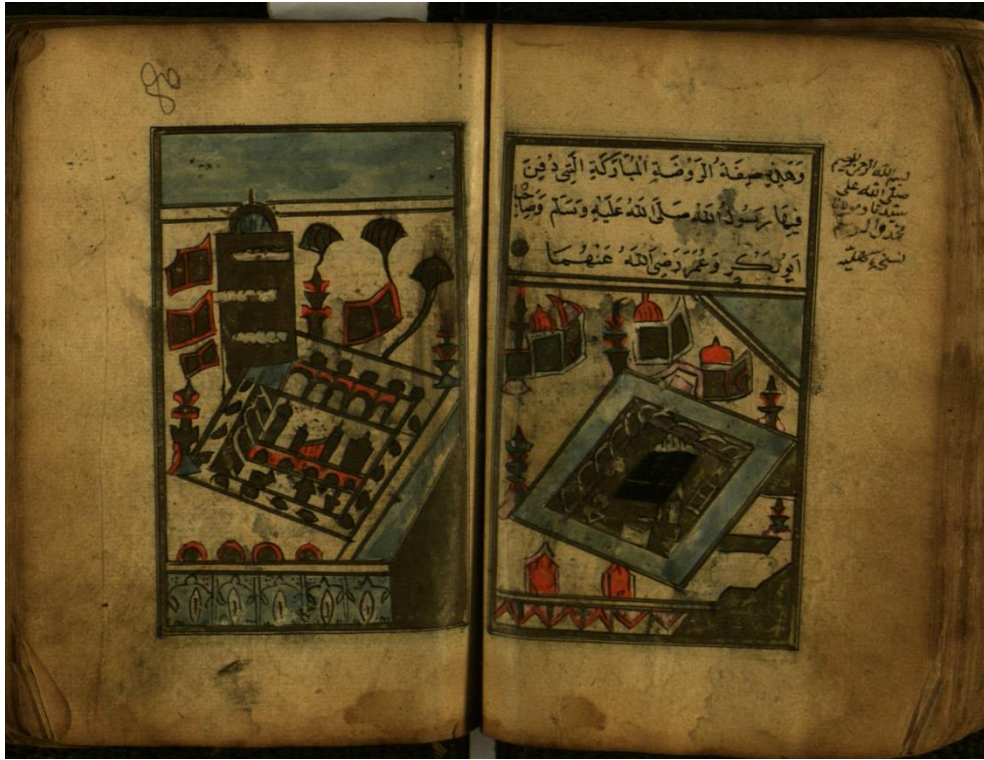 وَهَذِهِ صِفَةُ الرَّوْضَةِ الْمُبَارَكَةِ الَّتِي دُفِنَ
فِيهَا رَسُولُ اللهِ صَلَّى اللهُ عَلَيْهِ وَسَلَّمَ وَصَاحِبَا
اَبُوبَكْرٍ وَعُمَرَ رَضِيَ اللهُ عَنْهُمَا
بسم الله الرحمن الرحيم
صلى الله على
سيدنا ومولانا
محمد